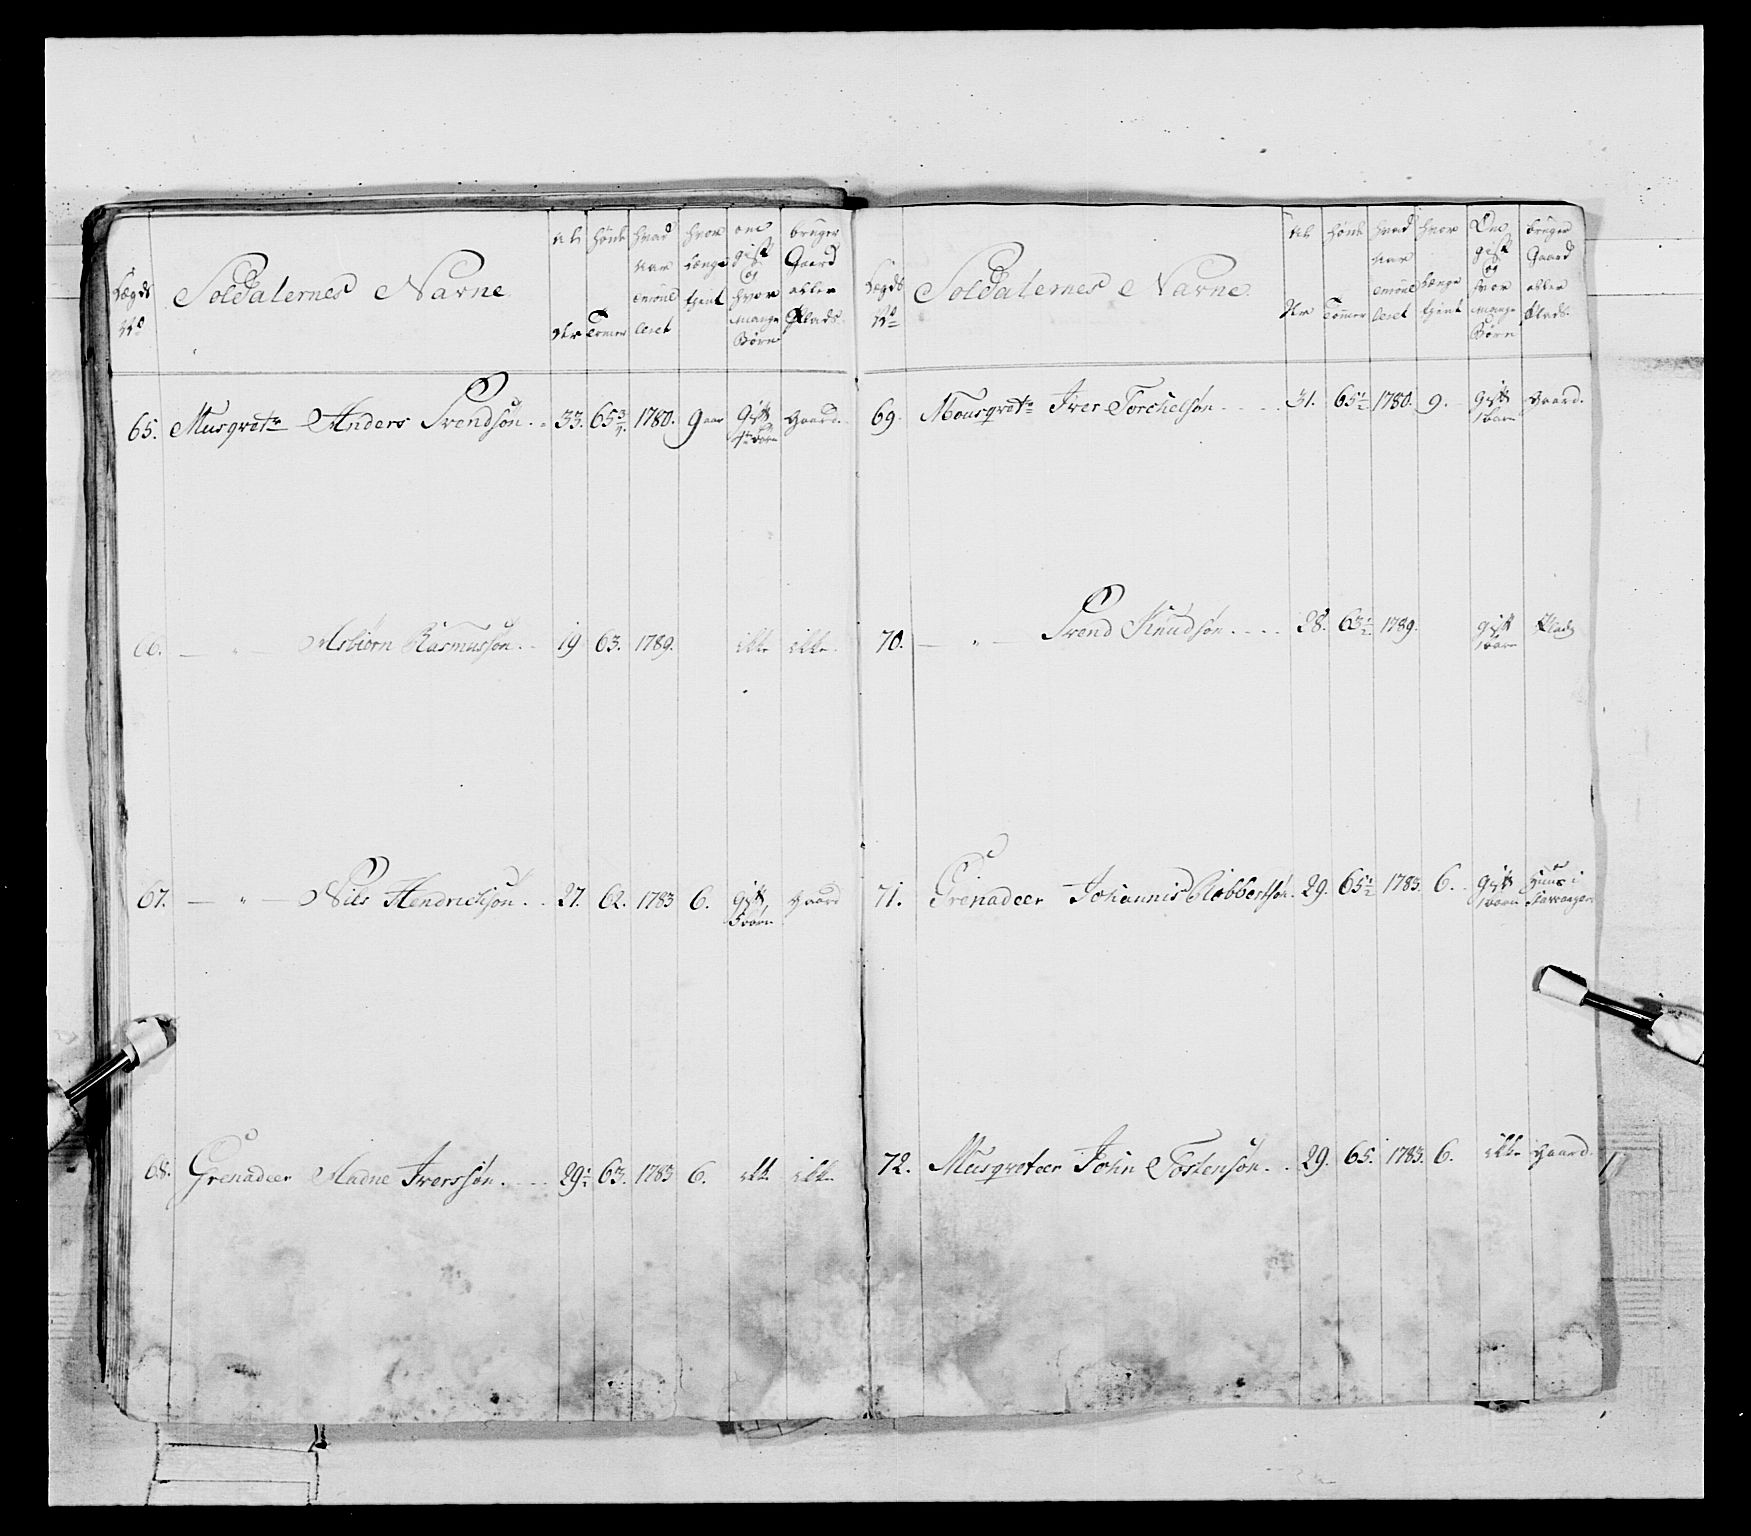 Lægds No
Soldaternes Navne
Alder
hönde Tommer
hvad Aar
hvor længe tjent
om gift og hvor mange Börn
bruger Gaard eller Plads.
65. Musqvetr Anders Svendsøn. 33. 65 3/4. 1780. 9 aar Gift Börn Gaard.
66. — " — Asbiörn Rasmussøn. 19 63. 1789. ikke ikke.
67. — " — Nils Hendrichsøn. 27. 62. 1783 6. gift, Börn gaard
68. Grenadeer Aadne Iversøn. 29 1/2 63. 1783 6. ikke ikke
Lægds No
Soldaternes Navne.
hvor længe tjent
Om gift og hvor mange Börn
bruger Gaard eller Plads.
69. Mousqvetr Iver Torchelsøn 31. 65 1/2 1780. 9. Gift 1 barn Gaard.
70. — " — Svend Knudsøn 28. 63 1/2 1789. gift 1 barn Plads
71. Grenadeer Johannis Robbertsøn. 29. 65 1/2 1783. 6. gift 1 barn Huus i Stavanger
72. Musqveteer John Tostensøn. 29. 65. 1783. 6. ikke gaard.